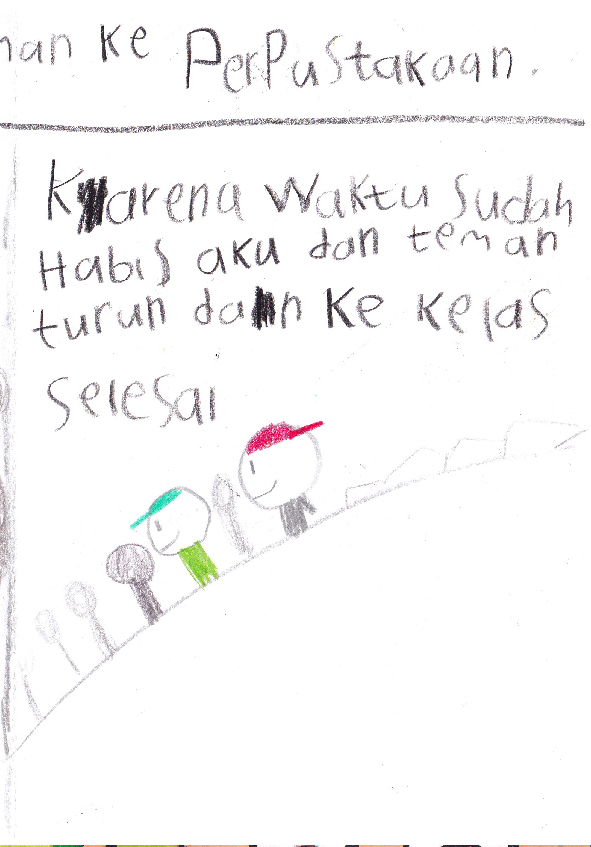 nan ke PerPustakaan.
Karena waktu sudah
Habis aku dan teman
turun dan ke kelas
selesai